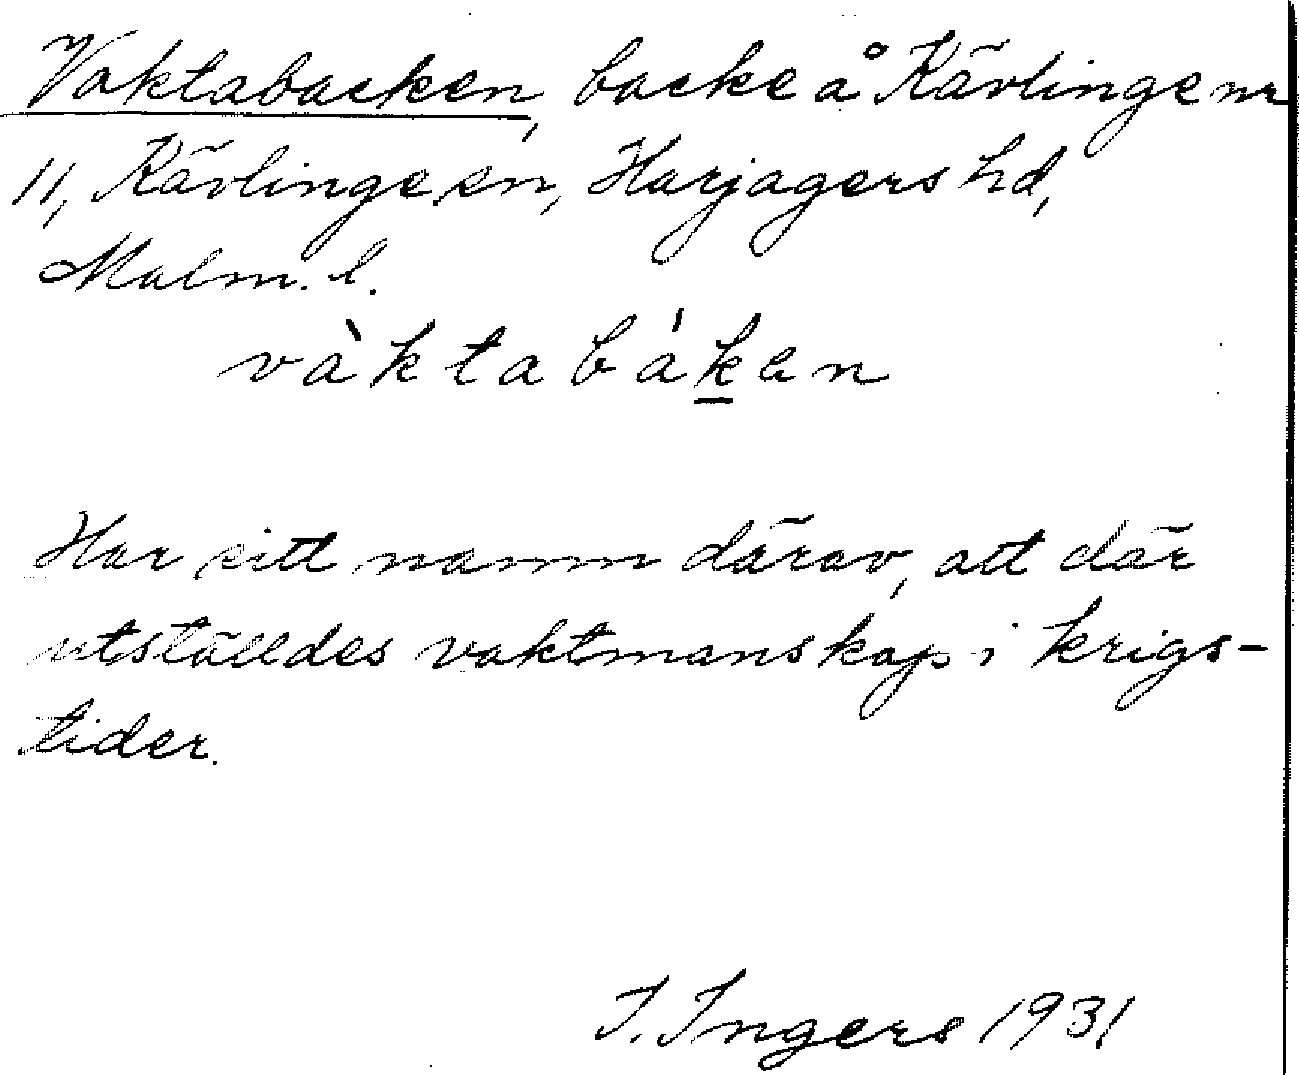 Vaktabacken, backe å Kävlinge nr
11, Kävlinge sn, Harjagers hd,
Malm. l.
vàktabáken
Har sitt namn därav, att där
utställdes vaktmanskap i krigs-
tider.
I. Ingers 1931